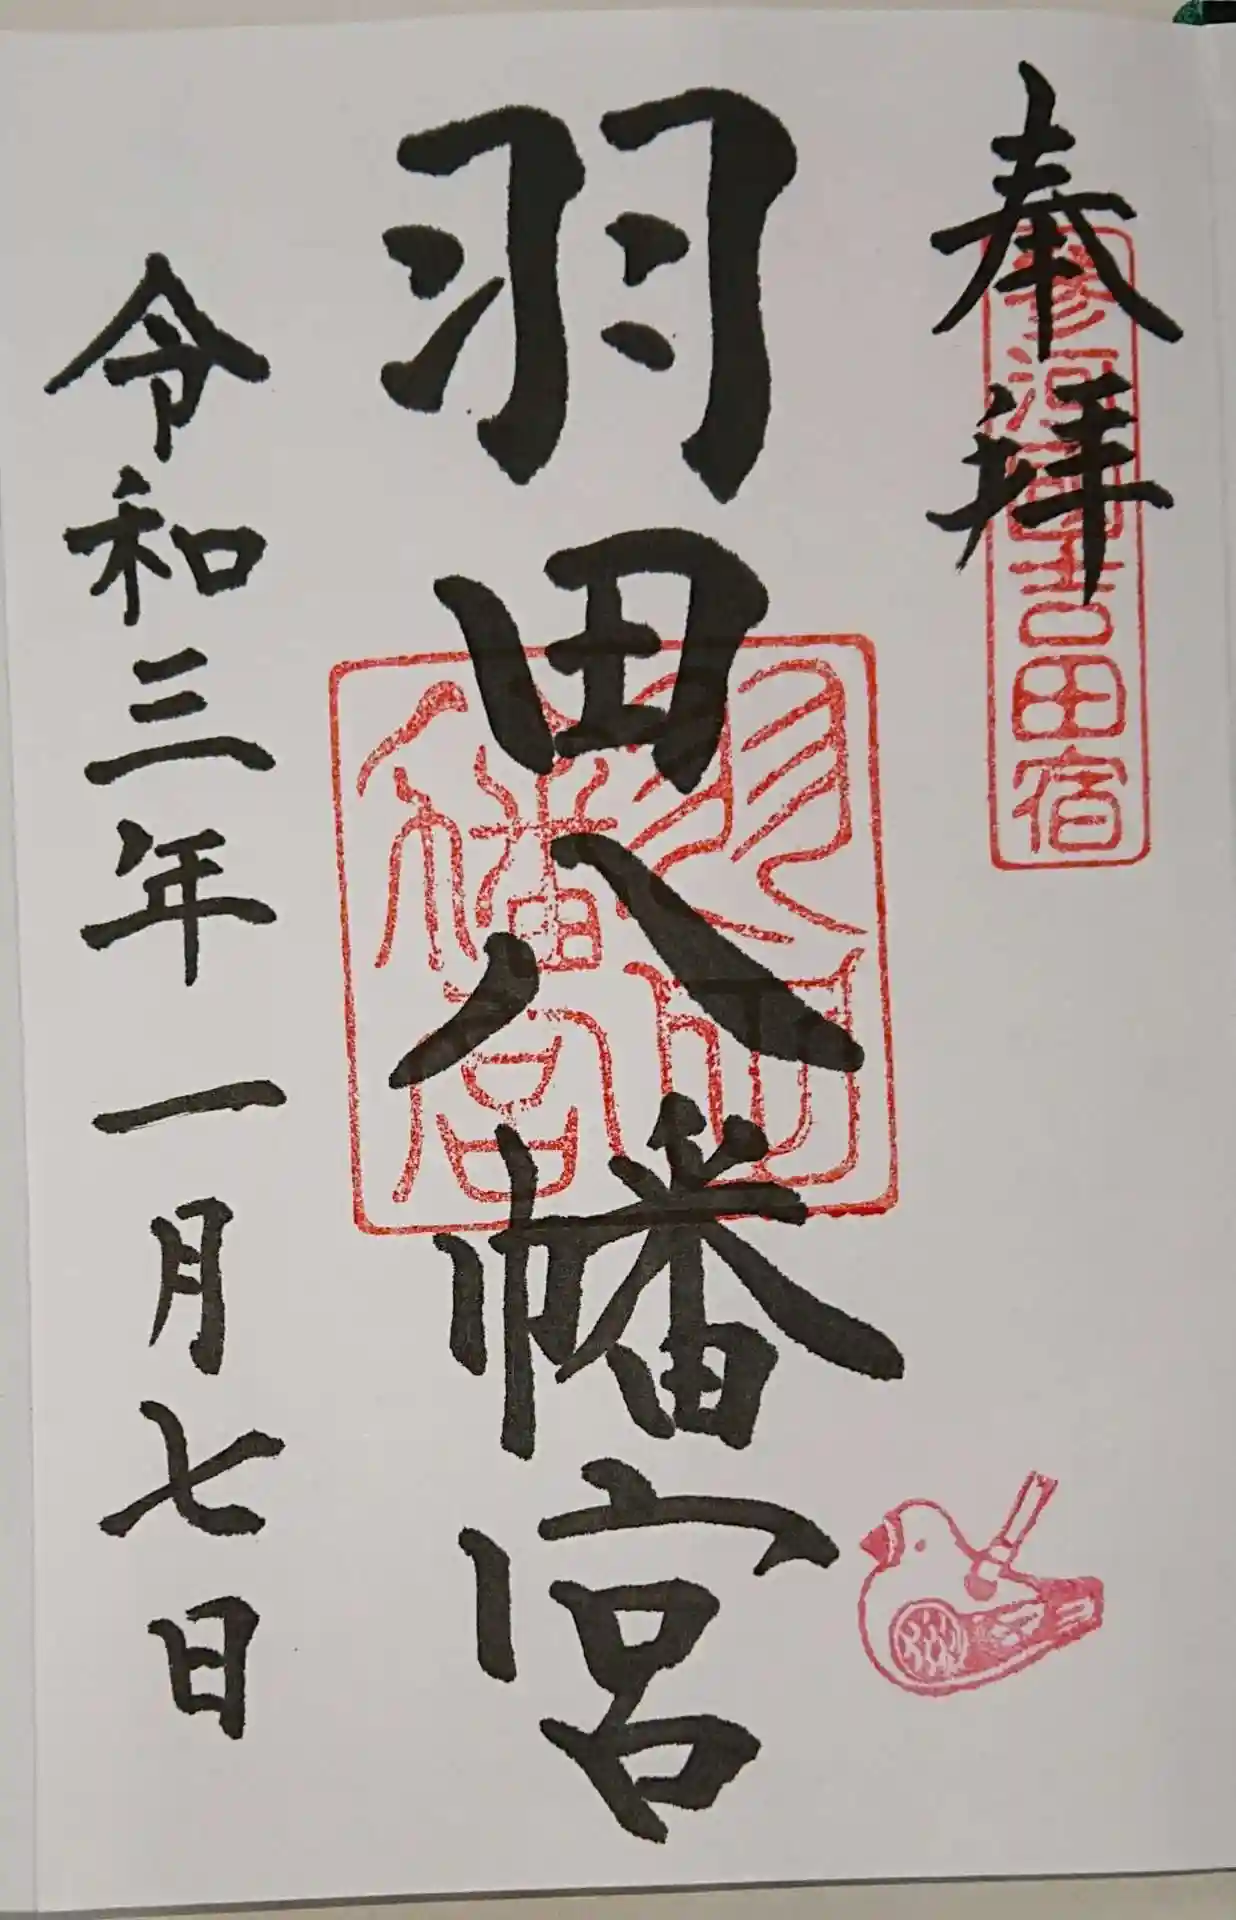 奉拝
参河国吉田宿
羽田八幡宮
羽田八幡宮
令和三年一月七日